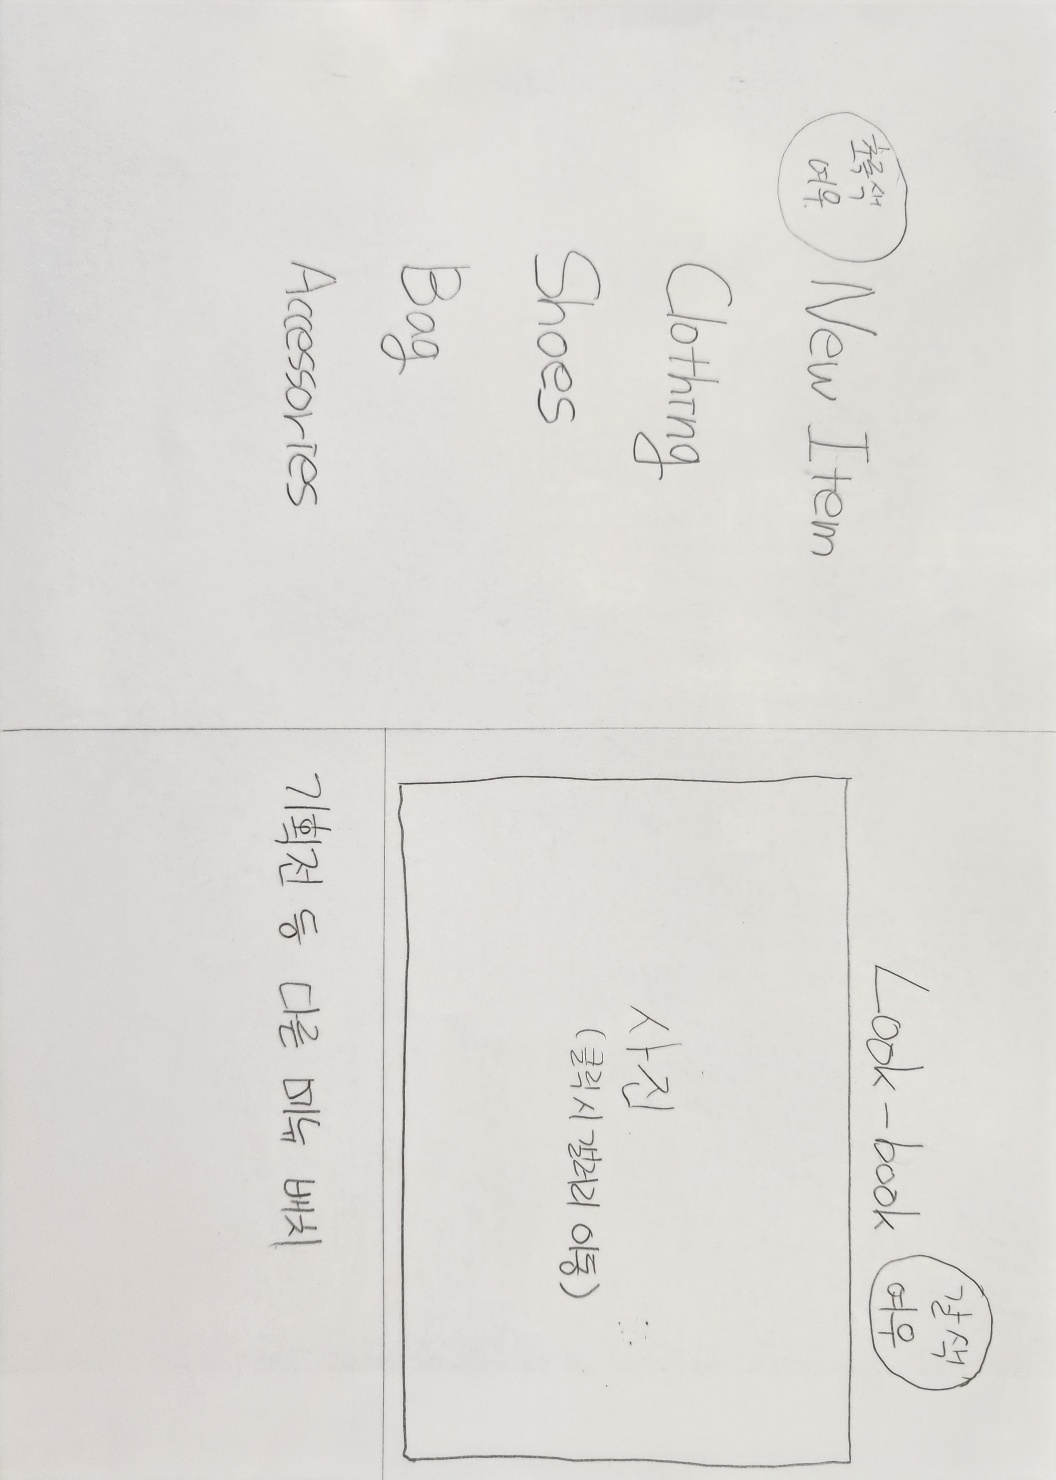 초록색
여우
New Item
Clothing
Shoes
Bag
Accessories
갈색
여우
Look-book
사진
(클릭시 갤러리 이동)
기획전 등 다른 메뉴 배치